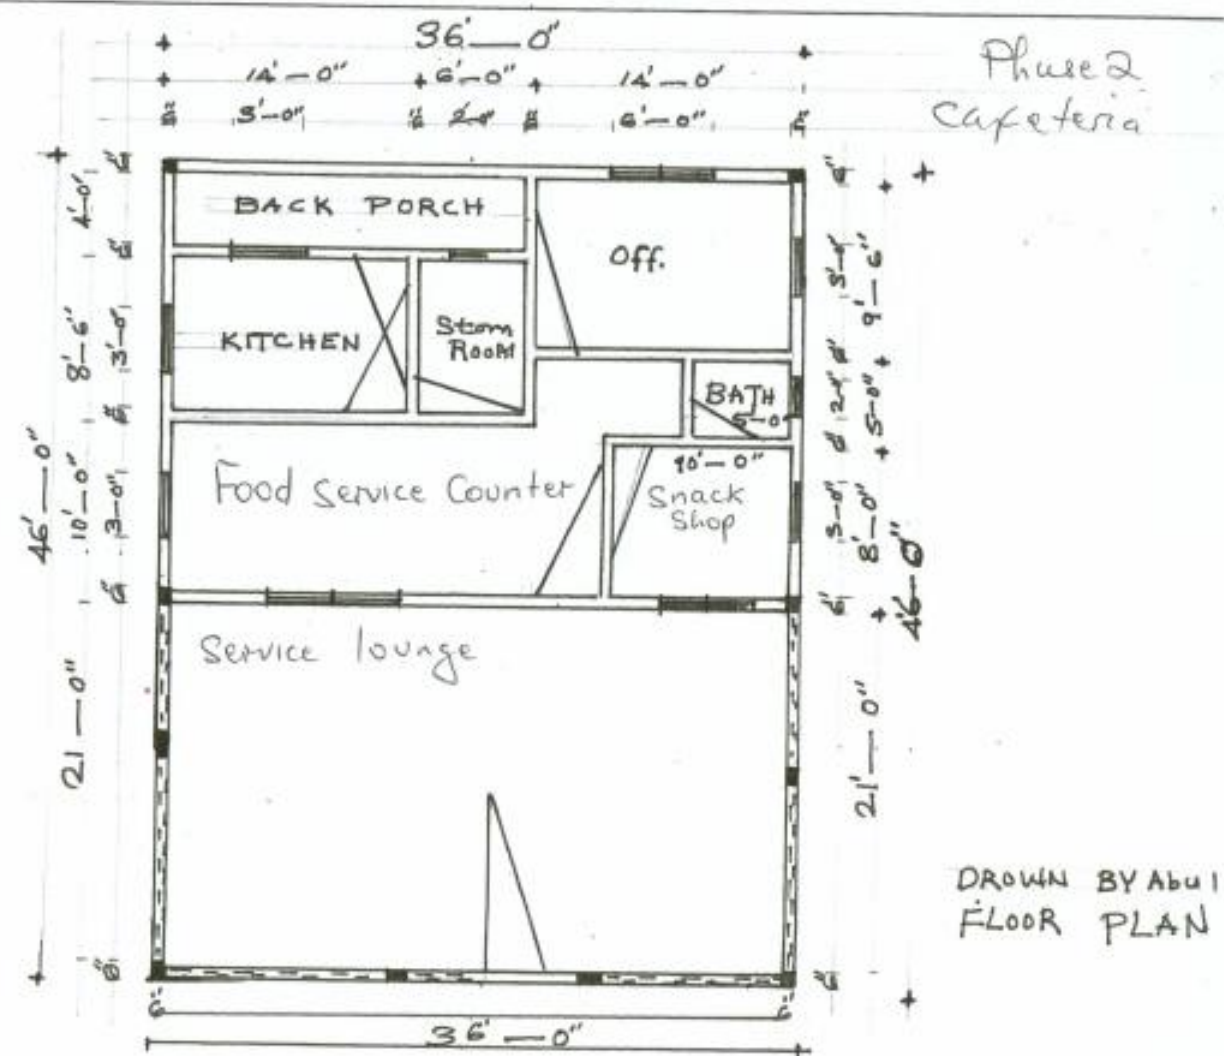 36'—0"
14'—0" 6'—0" 14'—0"
3'-0" 2-0" 6'—0"
Phase 2
Cafeteria
BACK PORCH
Off.
KITCHEN
Storn
ROOM
BATH
5-0"
Food Service Counter
10'—0"
Snack
Shop
Service lounge
46'—0"
4'-0"
8'-6"
10'-0"
21—0"
3'-0"
3-0"
9'—6"
5-0"
8'-0"
3-0"
46—0"
21'—0"
DROWN BY Abu1
FLOOR PLAN
6" 6"
36'—0"